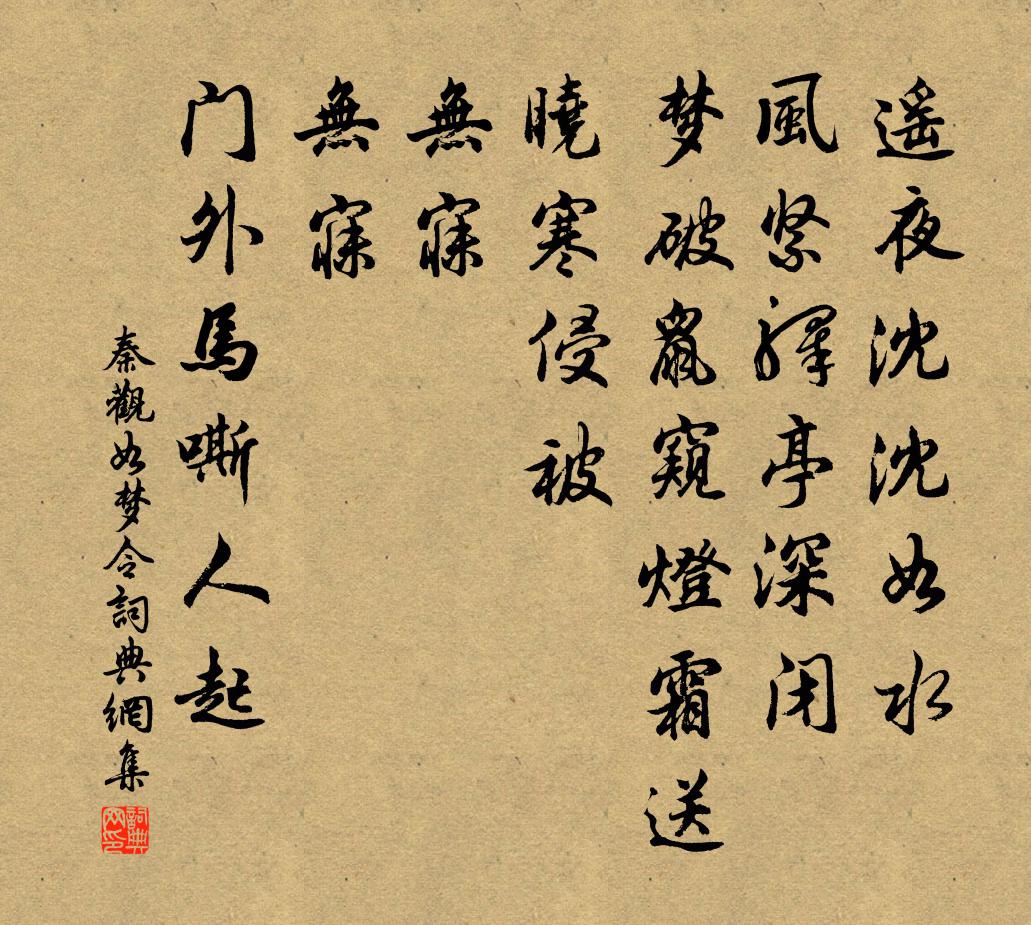 遥夜沈沈如水
風緊驛亭深闭
梦破鼠窺燈霜送
曉寒侵被
無寐
無寐
门外馬嘶人起
秦觀如梦令詞典網集
詞典网印